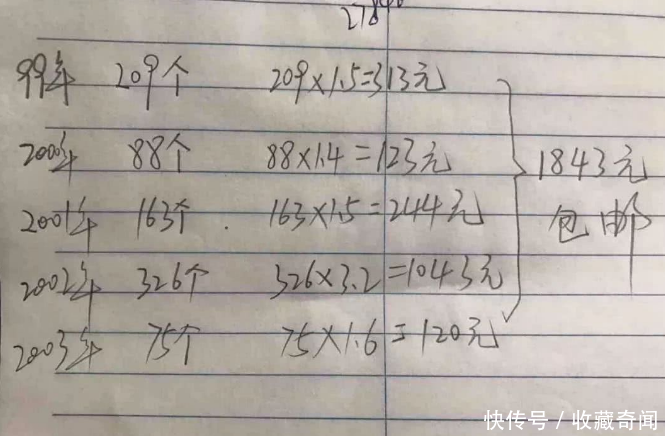 278
99年 209个 209×1.5=313元
2000年 88个 88×1.4=123元
1843元
2001年 163个. 163×1.5=244元
包邮
2002年 326个 326×3.2=1043元
2003年 75个 75×1.6=120元
快传号/收藏奇闻